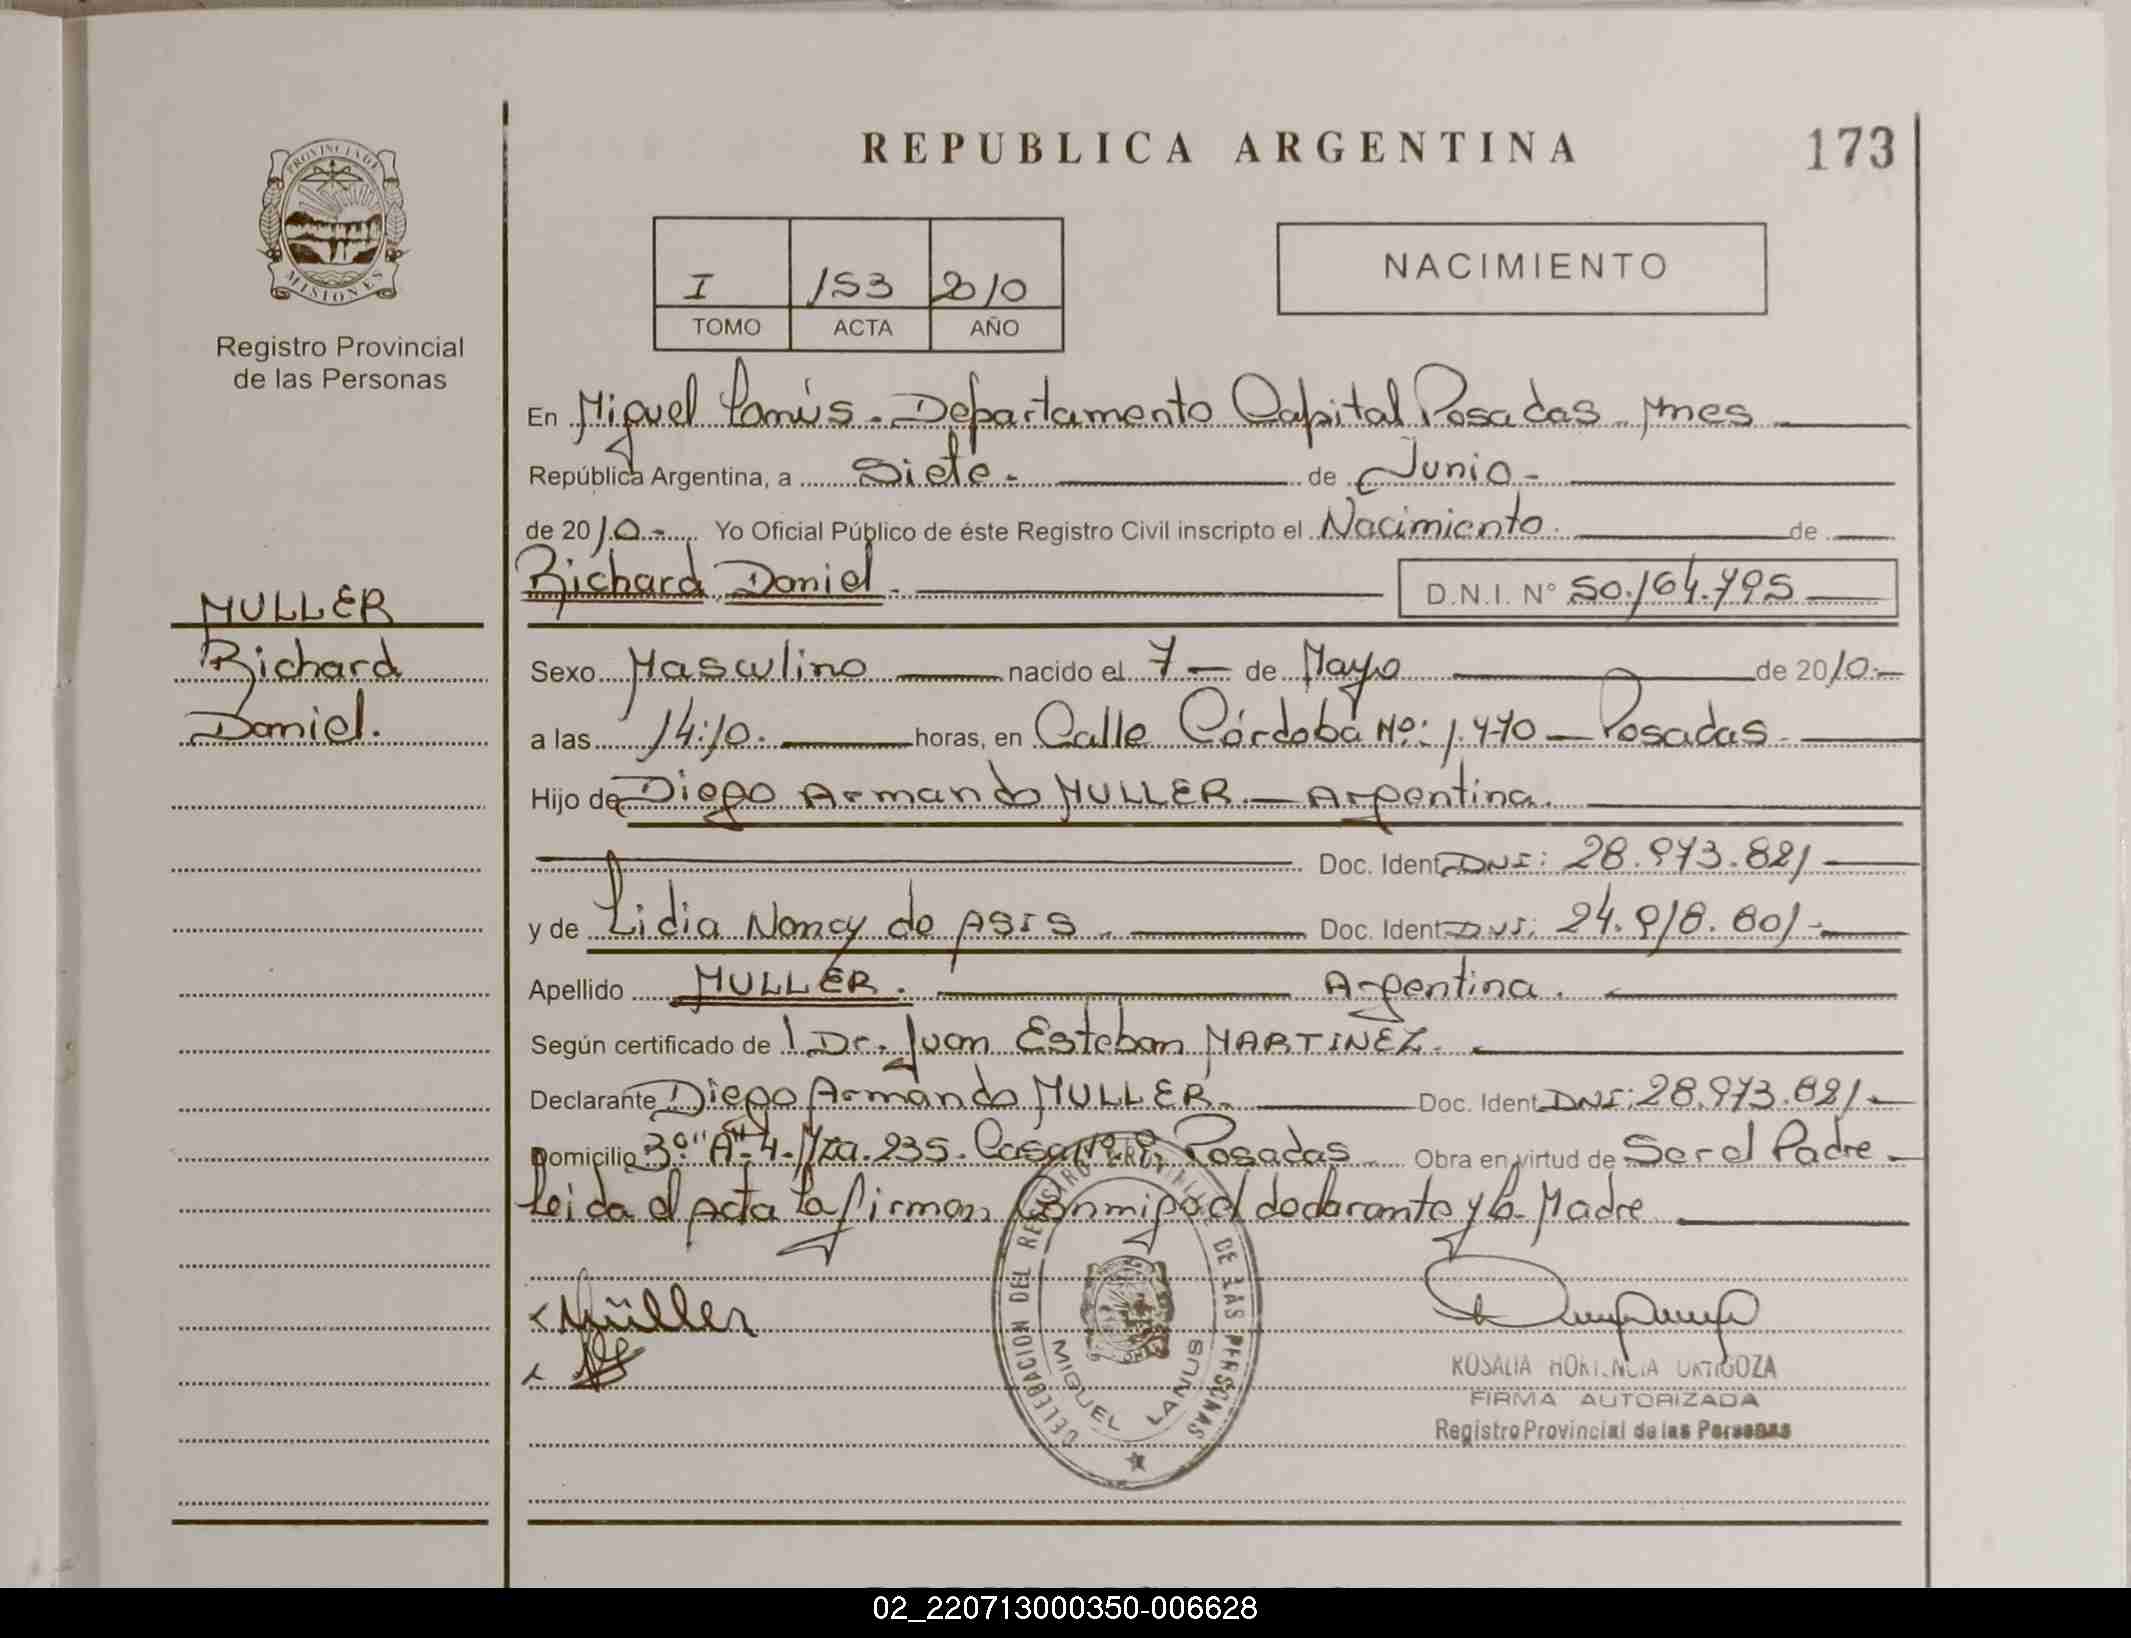 REPUBLICA ARGENTINA
173
PROVINCIA DE
MISIONES
Registro Provincial
de las Personas
I
153
2010
TOMO
ACTA
AÑO
NACIMIENTO
En Miguel Lanús - Departamento Capital Posadas - Mnes
República Argentina, a Siete.- de Junio -
de 2010.- Yo Oficial Público de éste Registro Civil inscripto el Nacimiento. de
Richard Daniel. D.N.I. N° 50.164.795
MULLER
Richard
Daniel.
Sexo Masculino nacido el 7 - de Mayo de 2010.-
a las 14:10. horas, en Calle Córdoba Nº: 1.970 - Posadas -
Hijo de Diego Armando MULLER. - Argentina.
Doc. Ident. DNI: 28.973.821
y de Lidia Nancy de ASIS. Doc. Ident. DNI: 24.918.801.-
Apellido MULLER. Argentina.
Según certificado de l Dr. Juan Esteban MARTINEZ.
Declarante Diego Armando MULLER. Doc. Ident. DNI: 28.973.821.-
Domicilio 3º "A"- 4 - Mza. 235 - Casa Posadas Obra en virtud de Ser el Padre -
Leida el Acta la firman Conmigo el declarante y la Madre
Müller
DELEGACION DEL REGISTRO PROVINCIAL DE LAS PERSONAS
MIGUEL LANUS
ROSALIA HORTENCIA ORTIGOZA
FIRMA AUTORIZADA
Registro Provincial de las Personas
02_220713000350-006628